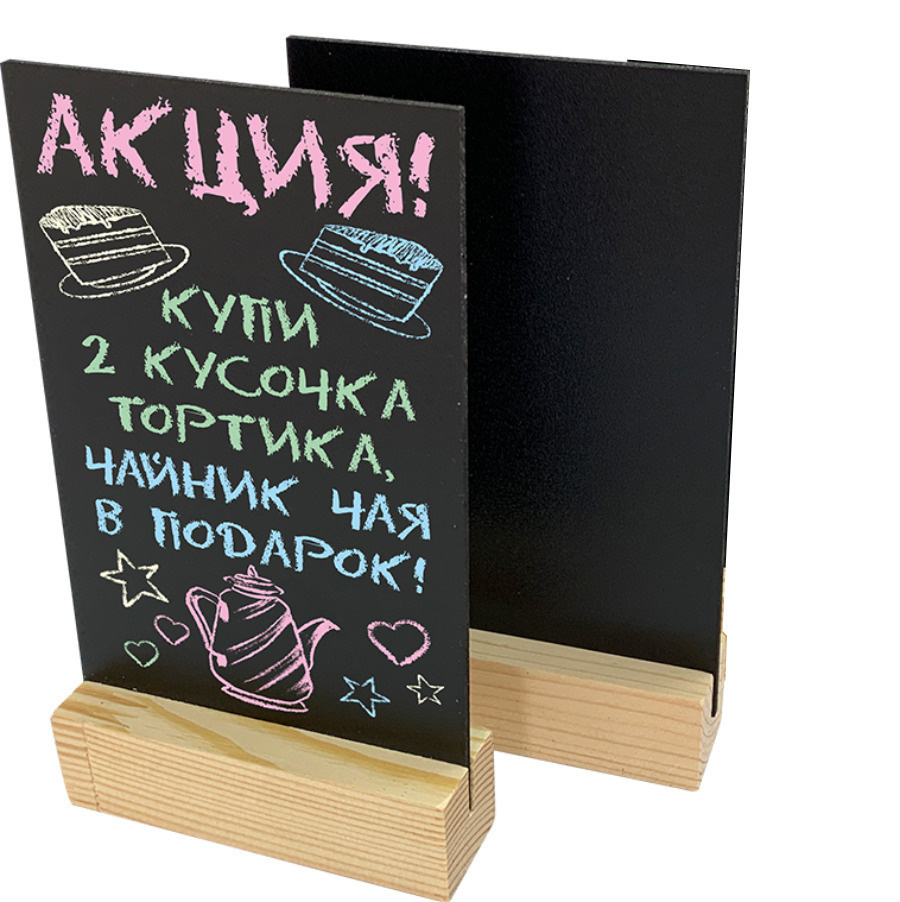 АКЦИЯ!
КУПИ
2 КУСОЧКА
ТОРТИКА,
ЧАЙНИК ЧАЯ
В ПОДАРОК!